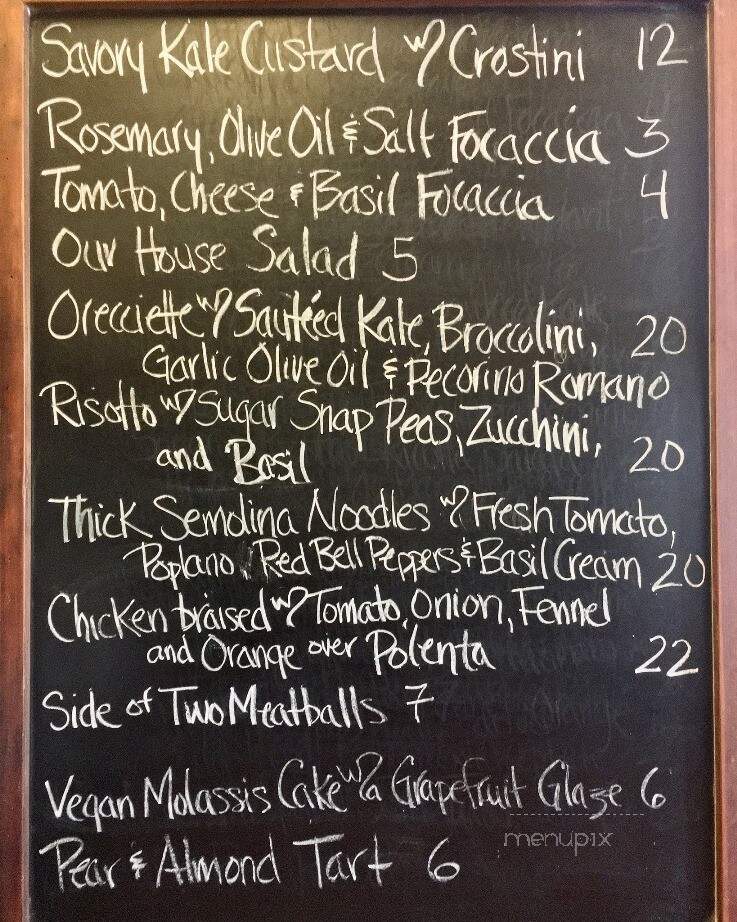 Savory Kale Custard w/ Crostini 12
Rosemary, Olive Oil & Salt Focaccia 3
Tomato, Cheese & Basil Focaccia 4
Our House Salad 5
Orecciette w/ Sautéed Kale, Broccolini, 20
Garlic Olive Oil & Pecorino Romano
Risotto w/ Sugar Snap Peas, Zucchini,
and Basil 20
Thick Semolina Noodles w/ Fresh Tomato,
Poplano, Red Bell Peppers & Basil Cream 20
Chicken braised w/ Tomato, Onion, Fennel
and Orange over Polenta 22
Side of Two Meatballs 7
Vegan Molassis Cake w/ a Grapefruit Glaze 6
menupix
Pear & Almond Tart 6